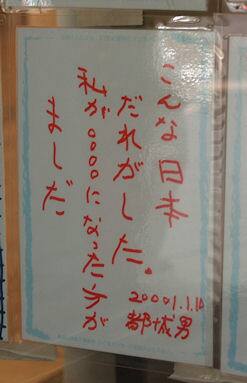 こんな日本
だれがした。
私が0000になった方が
ましだ
20001.1.10
都城男